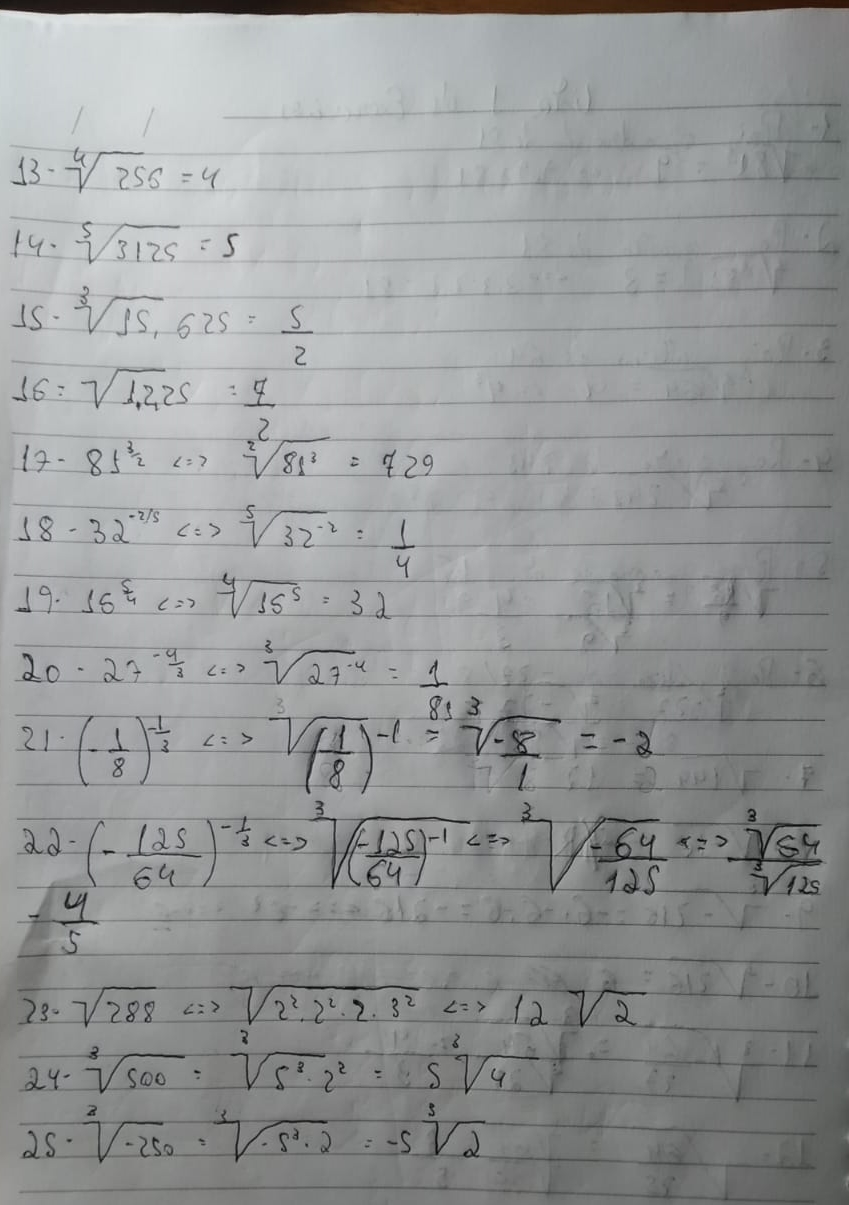 13 - ⁴√256 = 4
14 - ⁵√3125 = 5
15 - ³√15,625 = 5/2
16 = √12,25 = 7/2
17 - 81^3/2 <=> ²√81³ = 729
18 - 32^-2/5 <=> ⁵√32⁻² = 1/4
19 - 16^5/4 <=> ⁴√16⁵ = 32
20 - 27^-4/3 <=> ³√27⁻⁴ = 1/81
21 - (-1/8)^-1/3 <=> ³√(1/8)⁻¹ = ³√-8/1 = -2
22 - (-125/64)^-1/3 <=> ³√(-125/64)⁻¹ <=> ³√-64/125 <=> -³√64/³√125
-4/5
23 - √288 <=> √2².2².2.3² <=> 12√2
24 - ³√500 = ³√5³.2² = 5³√4
25 - ³√-250 = ³√-5³.2 = -5³√2